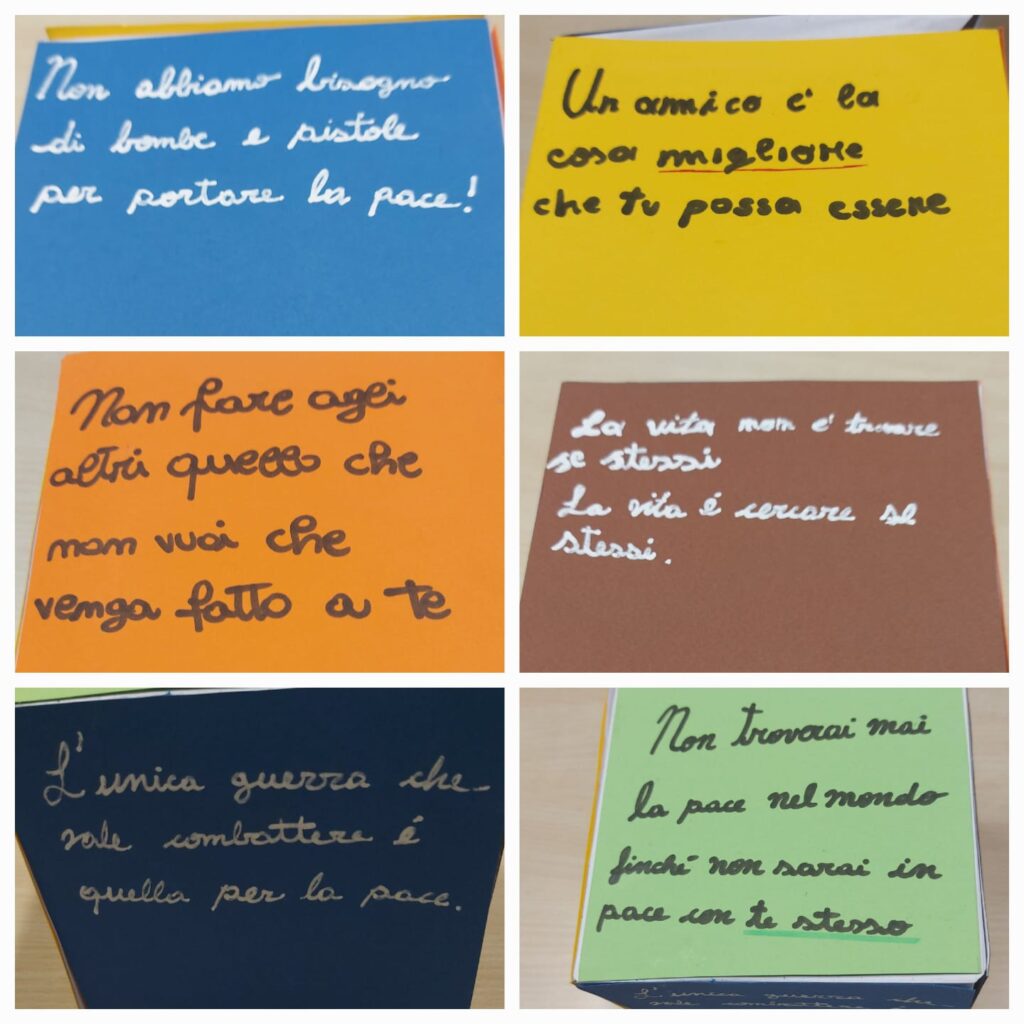 Non abbiamo bisogno
di bombe e pistole
per portare la pace!
Un amico é la
cosa migliore
che tu possa essere
Non fare agli
altri quello che
non vuoi che
venga fatto a te
La vita non é trovare
se stessi
La vita é cercare se
stessi.
L'unica guerra che
vale combattere é
quella per la pace.
Non troverai mai
la pace nel mondo
finché non sarai in
pace con te stesso
L'unica guerra che
vale combattere é